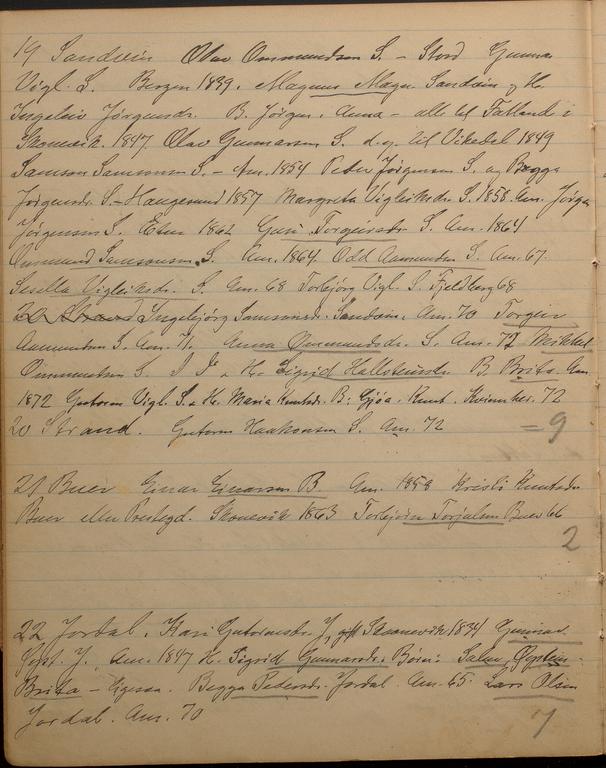 19 Sandvin Olav Ommundson S. - Stord Gunnar
Vigl. S. Bergen 1839. Magnus Magn. Sandvin og H.
Ingeleiv Jørgensdr. B. Jørgen, Anna - alle til Fatland i
Skonevik. 1847. Olav Gunnarson S. d.y. til Vikedal 1849
Samson Samsonson S. - Am. 1854 Peter Jørgenson S. og Begga
Jørgensdr. S. - Haugesund 1857 Margreta Vigleiksdr. S. 1858. Am. Jørgen
Jørgenson S. Etne 1862 Guri Torgeirsdr. S. Am. 1864
Ommund Samsonson S. Am. 1864. Odd Aamundson S. Am. 67.
Sesilla Vigleiksdr. S. Am. 68 Torbjörg Vigl. S. Fjeldberg 68
Ingebjørg Samsonsd. Sandvin. Am. 70 Torgeir
Aamundson S. Am. 71. Anna Ommundsdr. S. Am. 72 Mikkel
Ommundson S. H. Sigrid Hallsteinsdr. B. Brita. Am.
1872 Gutorm Vigl. S. & H. Maria Knutsdr. B: Gjøa. Knut. Kvinnher. 72
20 Strand. Gutorm Haakonson S. Am. 72 = 9
21 Buer Einar Einarson B. Am. 1858 Kristi Knutsdr
Buer Prestegd. Skonevik 1863 Torbjörn Torjalson Buer 66
2
22 Jordal. Kari Gutormsdr. J, Skonevik 1834 Gunnar
J. Am. 1847 H. Sigrid Gunnarsdr. Børn: Salm. Øystein.
Brita - Begga Pedersd. Jordal. Am. 65. Lars Olson
Jordal. Am. 70 7